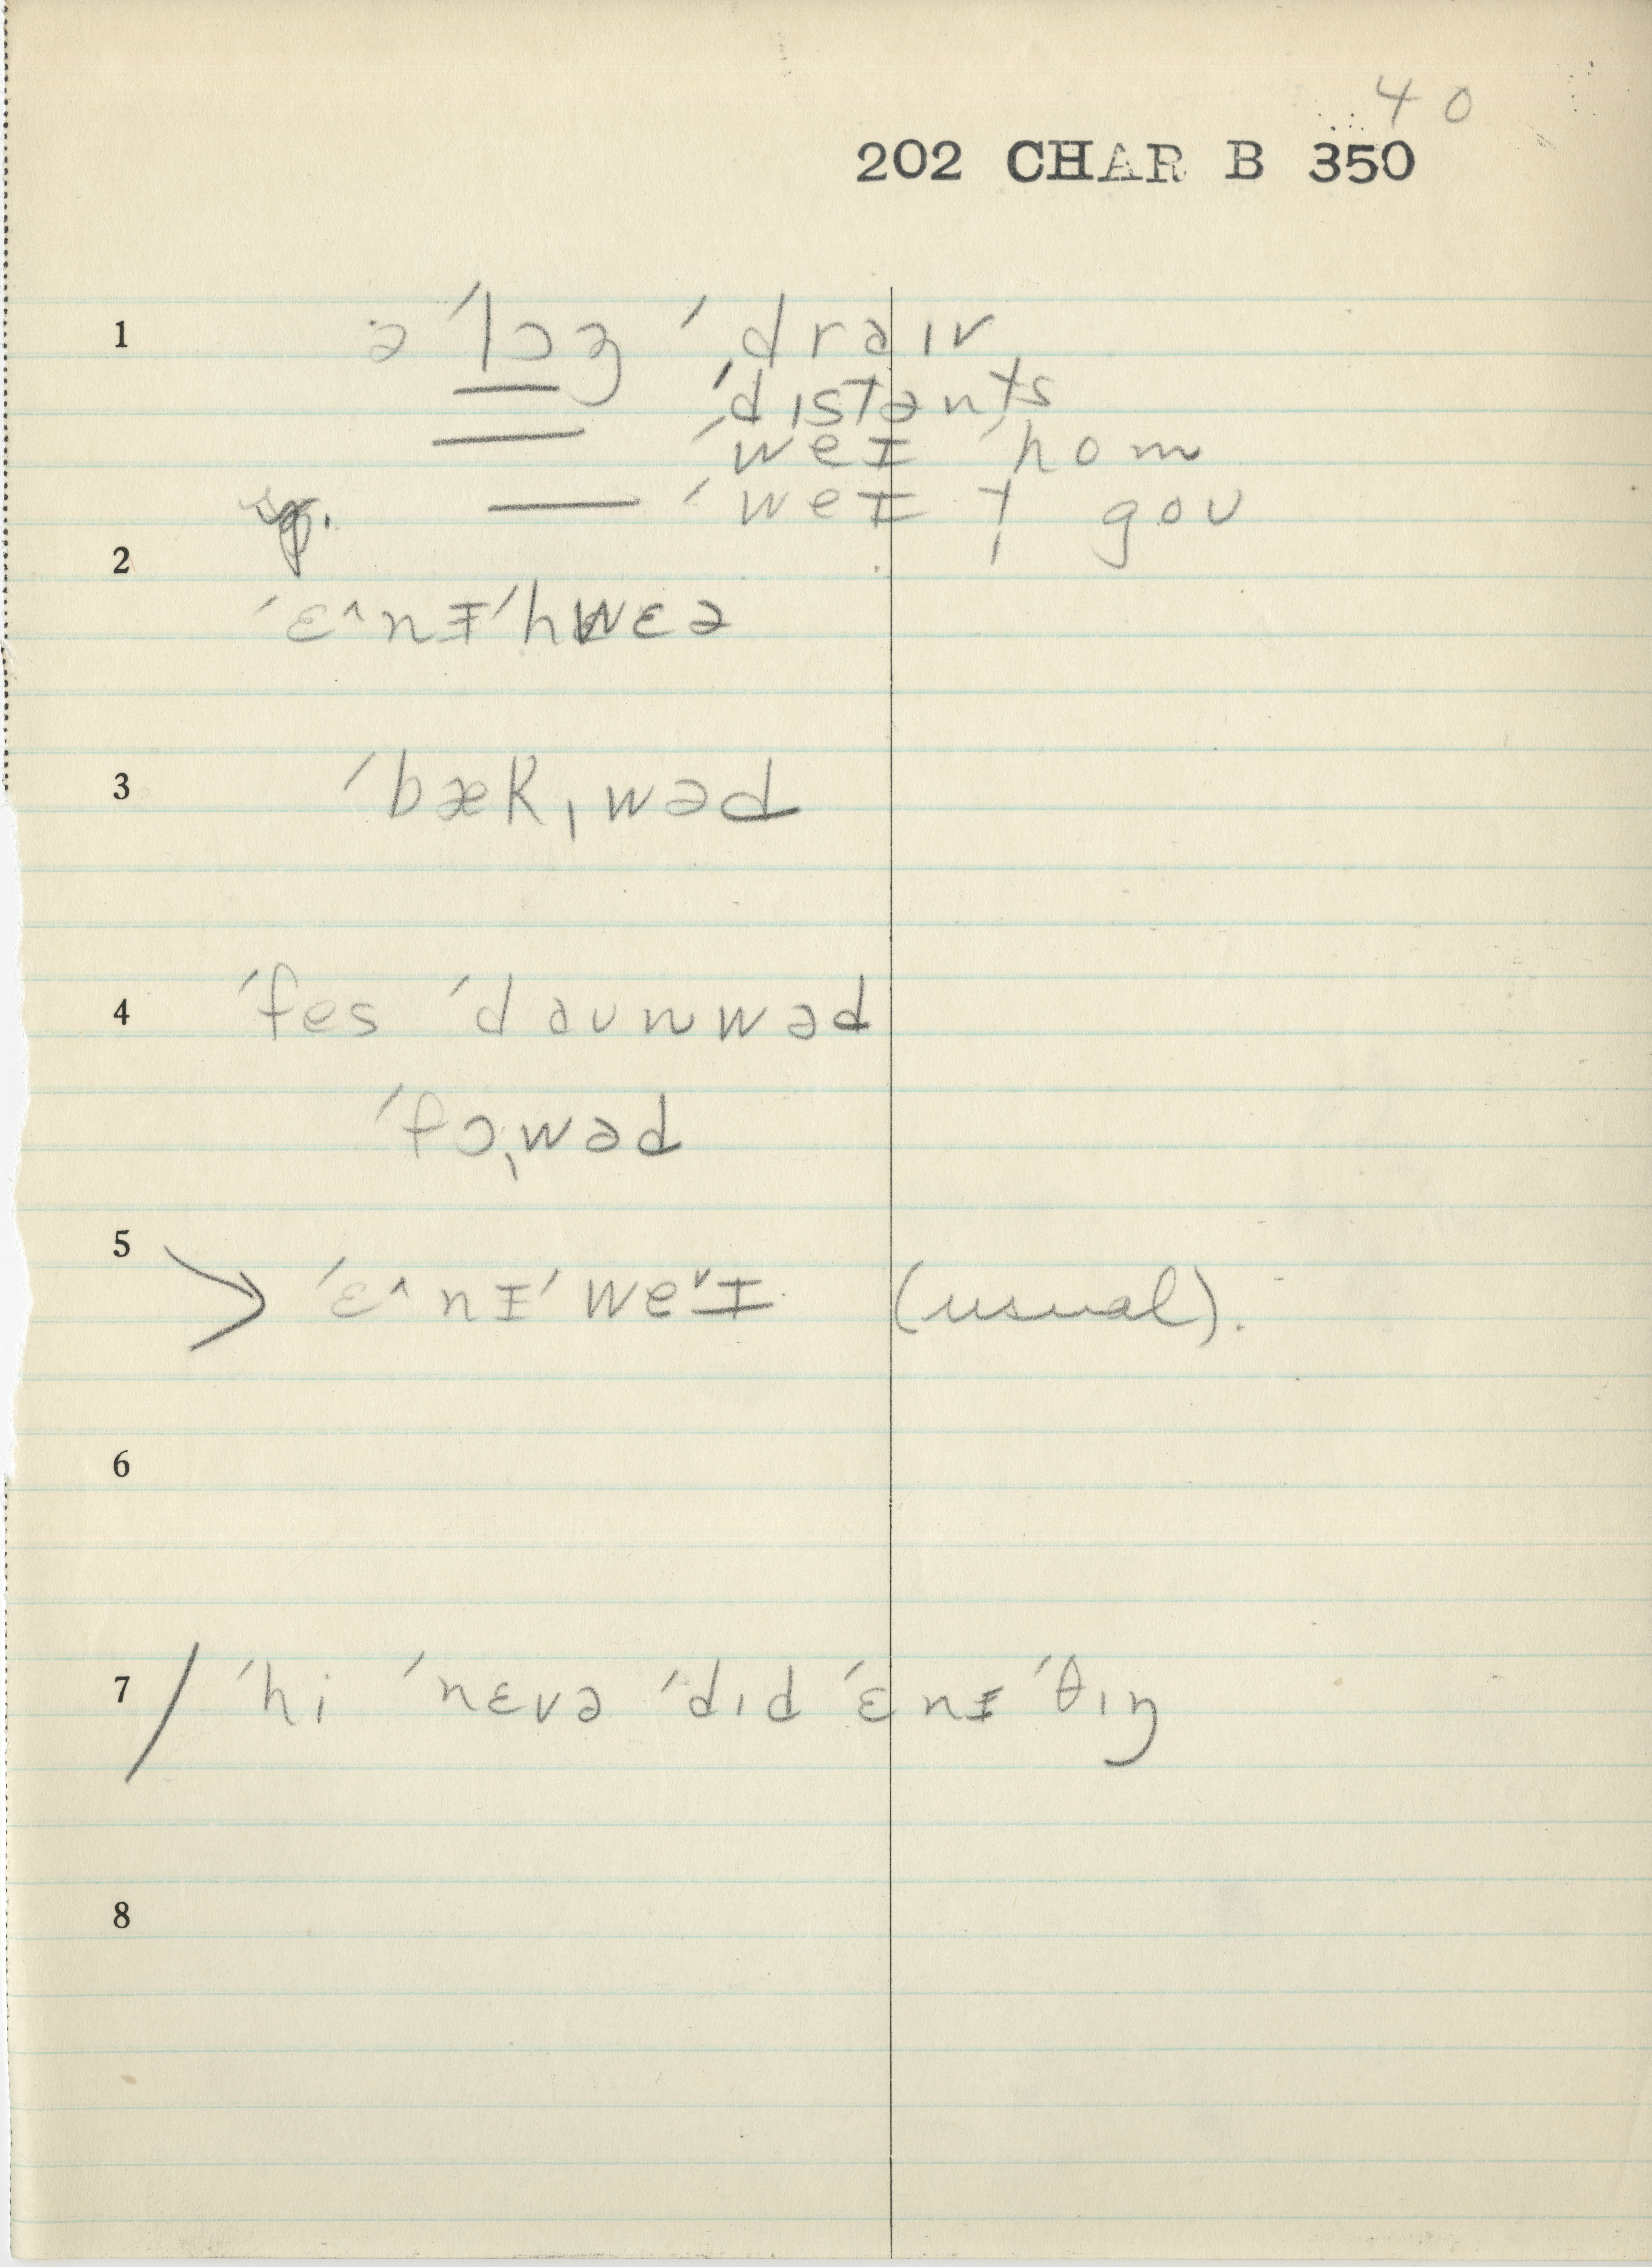 40
202 CHAR B 350
1 ə ˈlɔŋ ˈdraɪv
ˈdɪstənts
ˈweᵻ ˈhom
ˈweᵻ t gou
2
ˈɛ^nᵻˈhwɛə
3 ˈbæk ˌwəd
4 ˈfes ˈdaunwəd
ˈfɔˌwəd
5 ˈɛ^nᵻˈweˇᵻ (usual).
6
7 / ˈhi ˈnɛvə ˈdɪd ˈɛnᵻ ˈθɪŋ
8